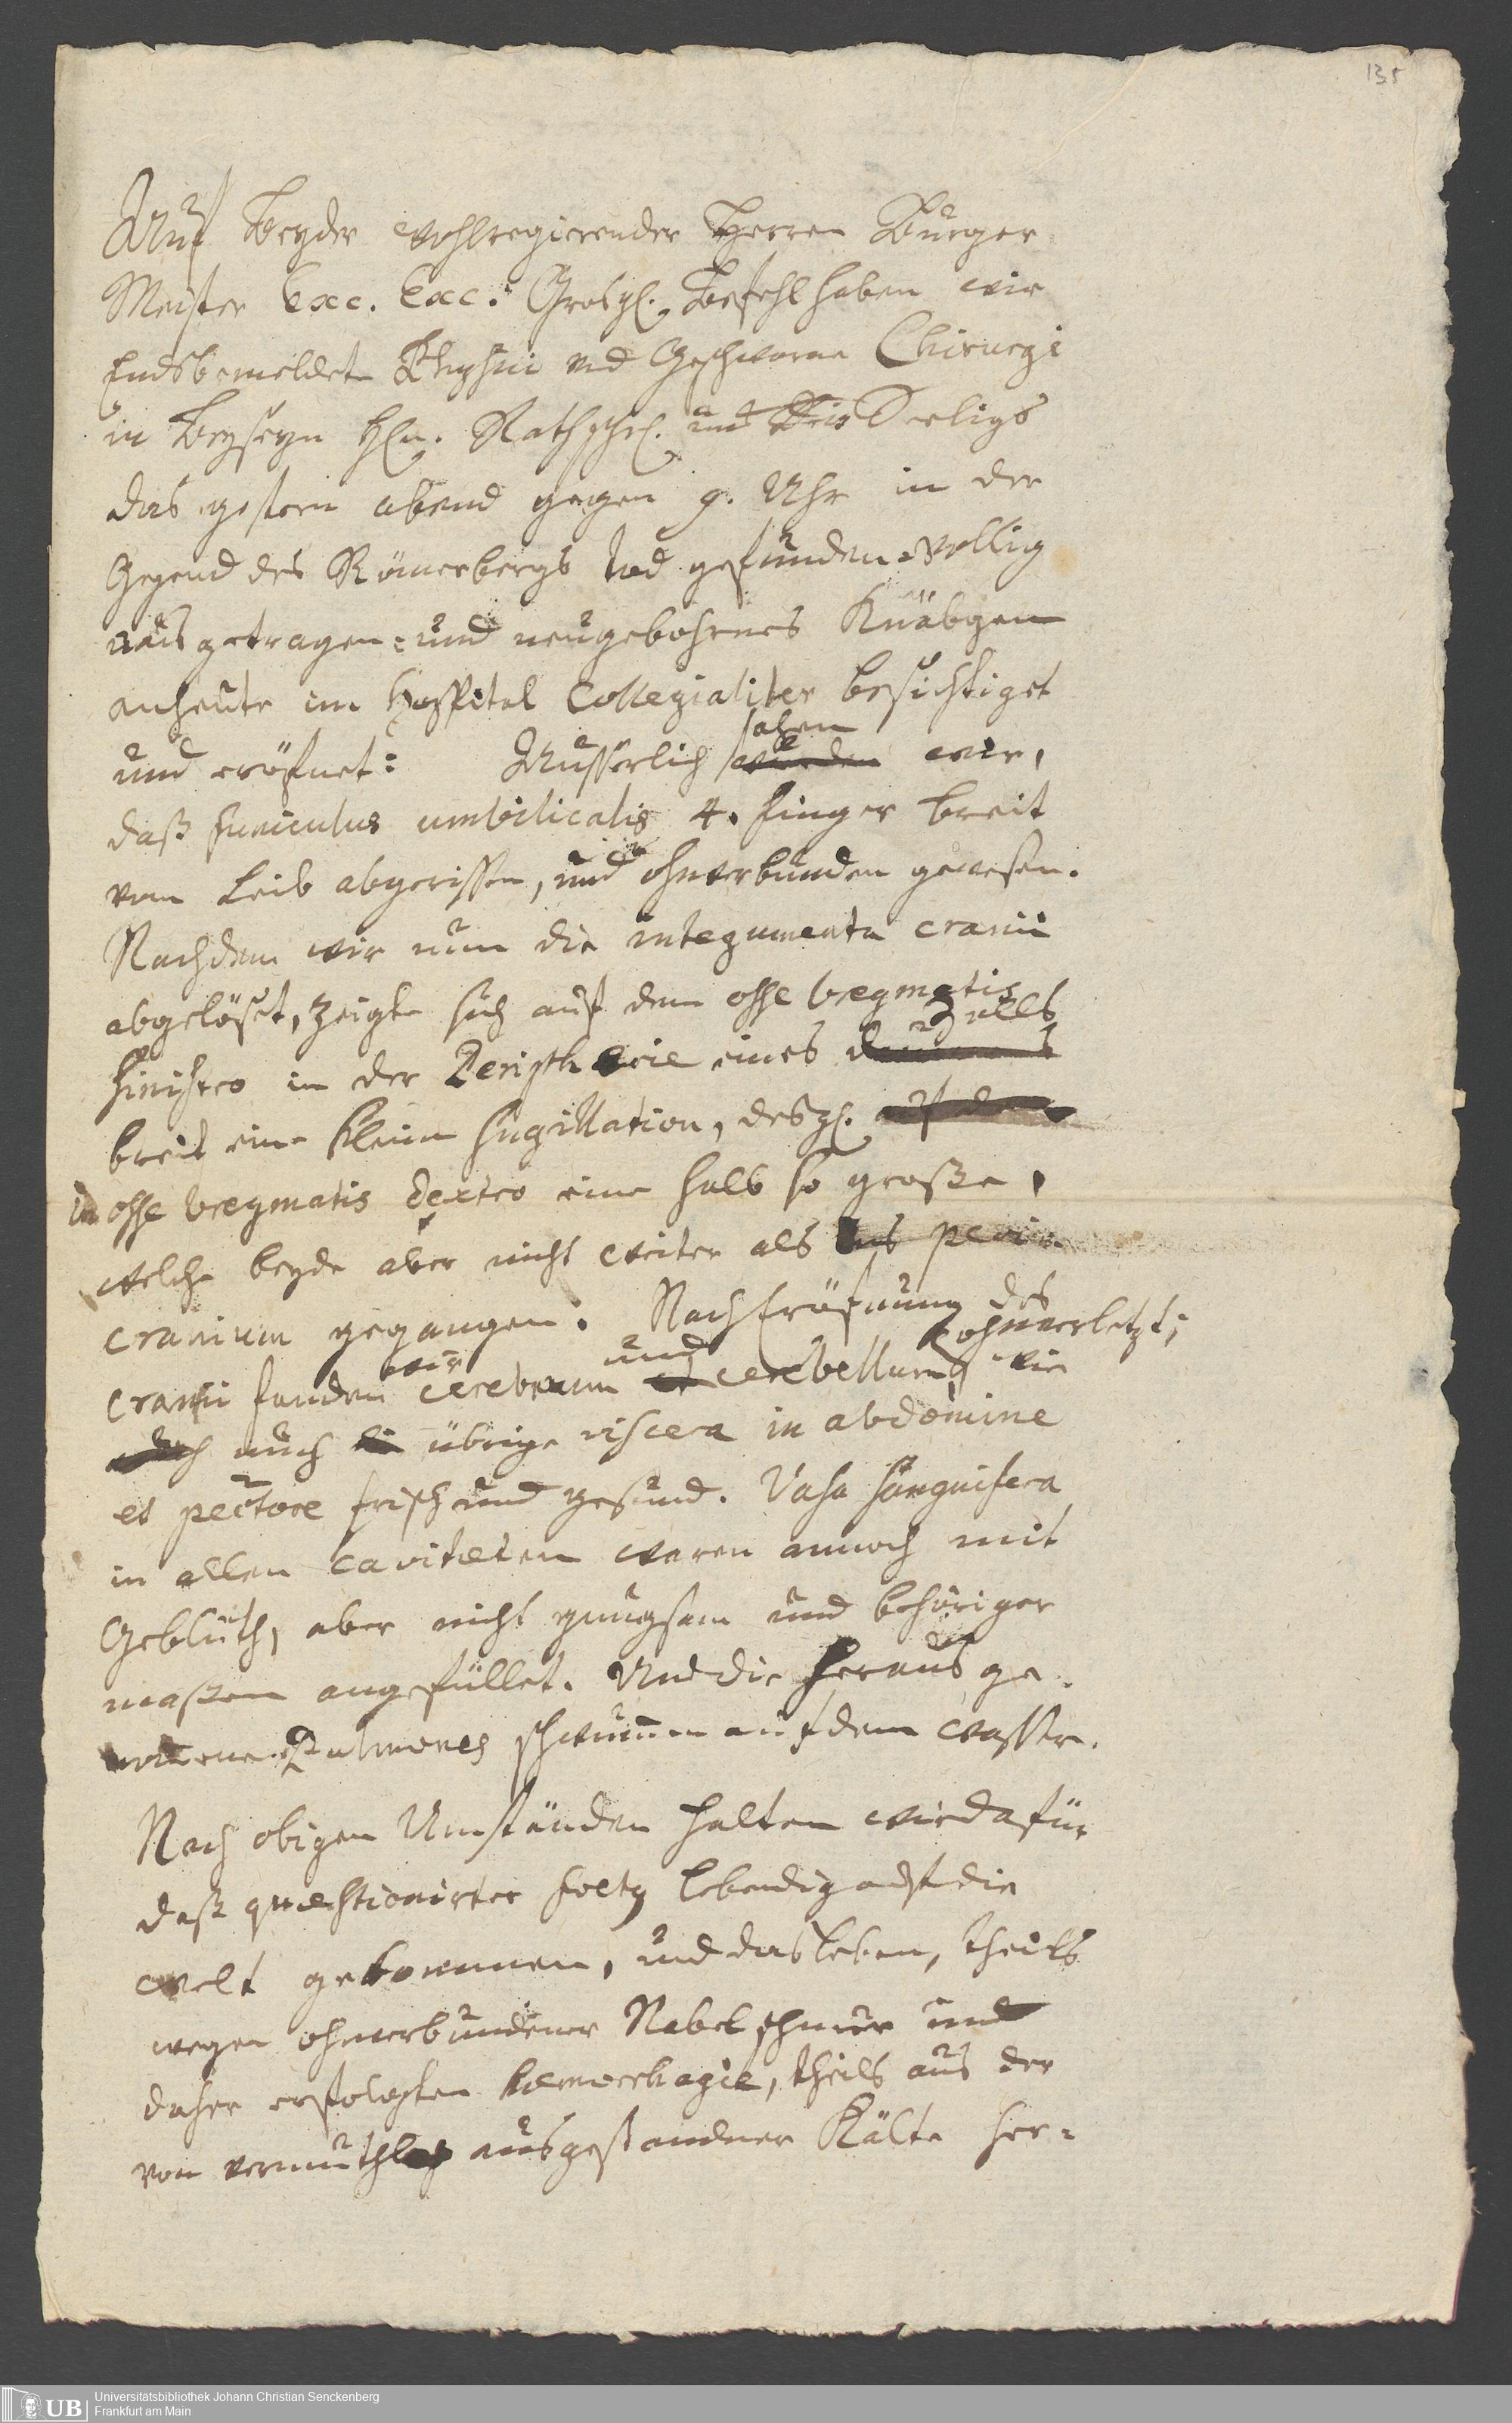 135
Auf beyder wohlregierender Herren Burger
Meister Exc. Exc. Grosgl. Befehl haben wir
Endsbemeldete Physici und Geschworne Chirurgi
in Beyseyn Hln. Rathschr. und Seeligs
das gestern abend gegen 9. Uhr in der
Gegend des Römerbergs tod gefunden-völlig
ausgetragen- und neugebohrnes Knäbgen
anheute im Hospital Collegialiter besichtiget
und eröfnet: Äusserlich sahen wir,
daß funiculus umbilicalis 4. finger breit
vom Leib abgerissen, und ohnverbunden gewesen.
Nachdem wir nun die integumenta cranii
abgelöset, zeigte sich auf dem osse bregmatis
sinistro in der Peripherie eines Zolls
breit eine kleine Sugillation, desgl.
in osse bregmatis dextro eine halb so große,
welche beyde aber nicht weiter als das peri-
cranium gegangen. Nach Eröfnung des
cranii fanden wir cerebrum und cerebellum ohnverletzt, wie
auch übrige viscera in abdomine
et pectore frisch und gesund. Vasa sanguifera
in allen cavitæten waren annoch mit
Geblüth, aber nicht gnugsam und behöriger
maßen angefüllet. Und die heraus ge-
nommene Pulmones schwummen auf dem Wasser.
Nach obigen Umständen halten wir dafür
daß quæstionirter foetus lebendig auf die
Welt gekommen, und das Leben, theils
wegen ohnverbundener Nabelschnur und
daher erfolgten hæmorrhagie, theils aus der
von vermuthlich ausgestandner Kälte her-
UB
Universitätsbibliothek Johann Christian Senckenberg
Frankfurt am Main